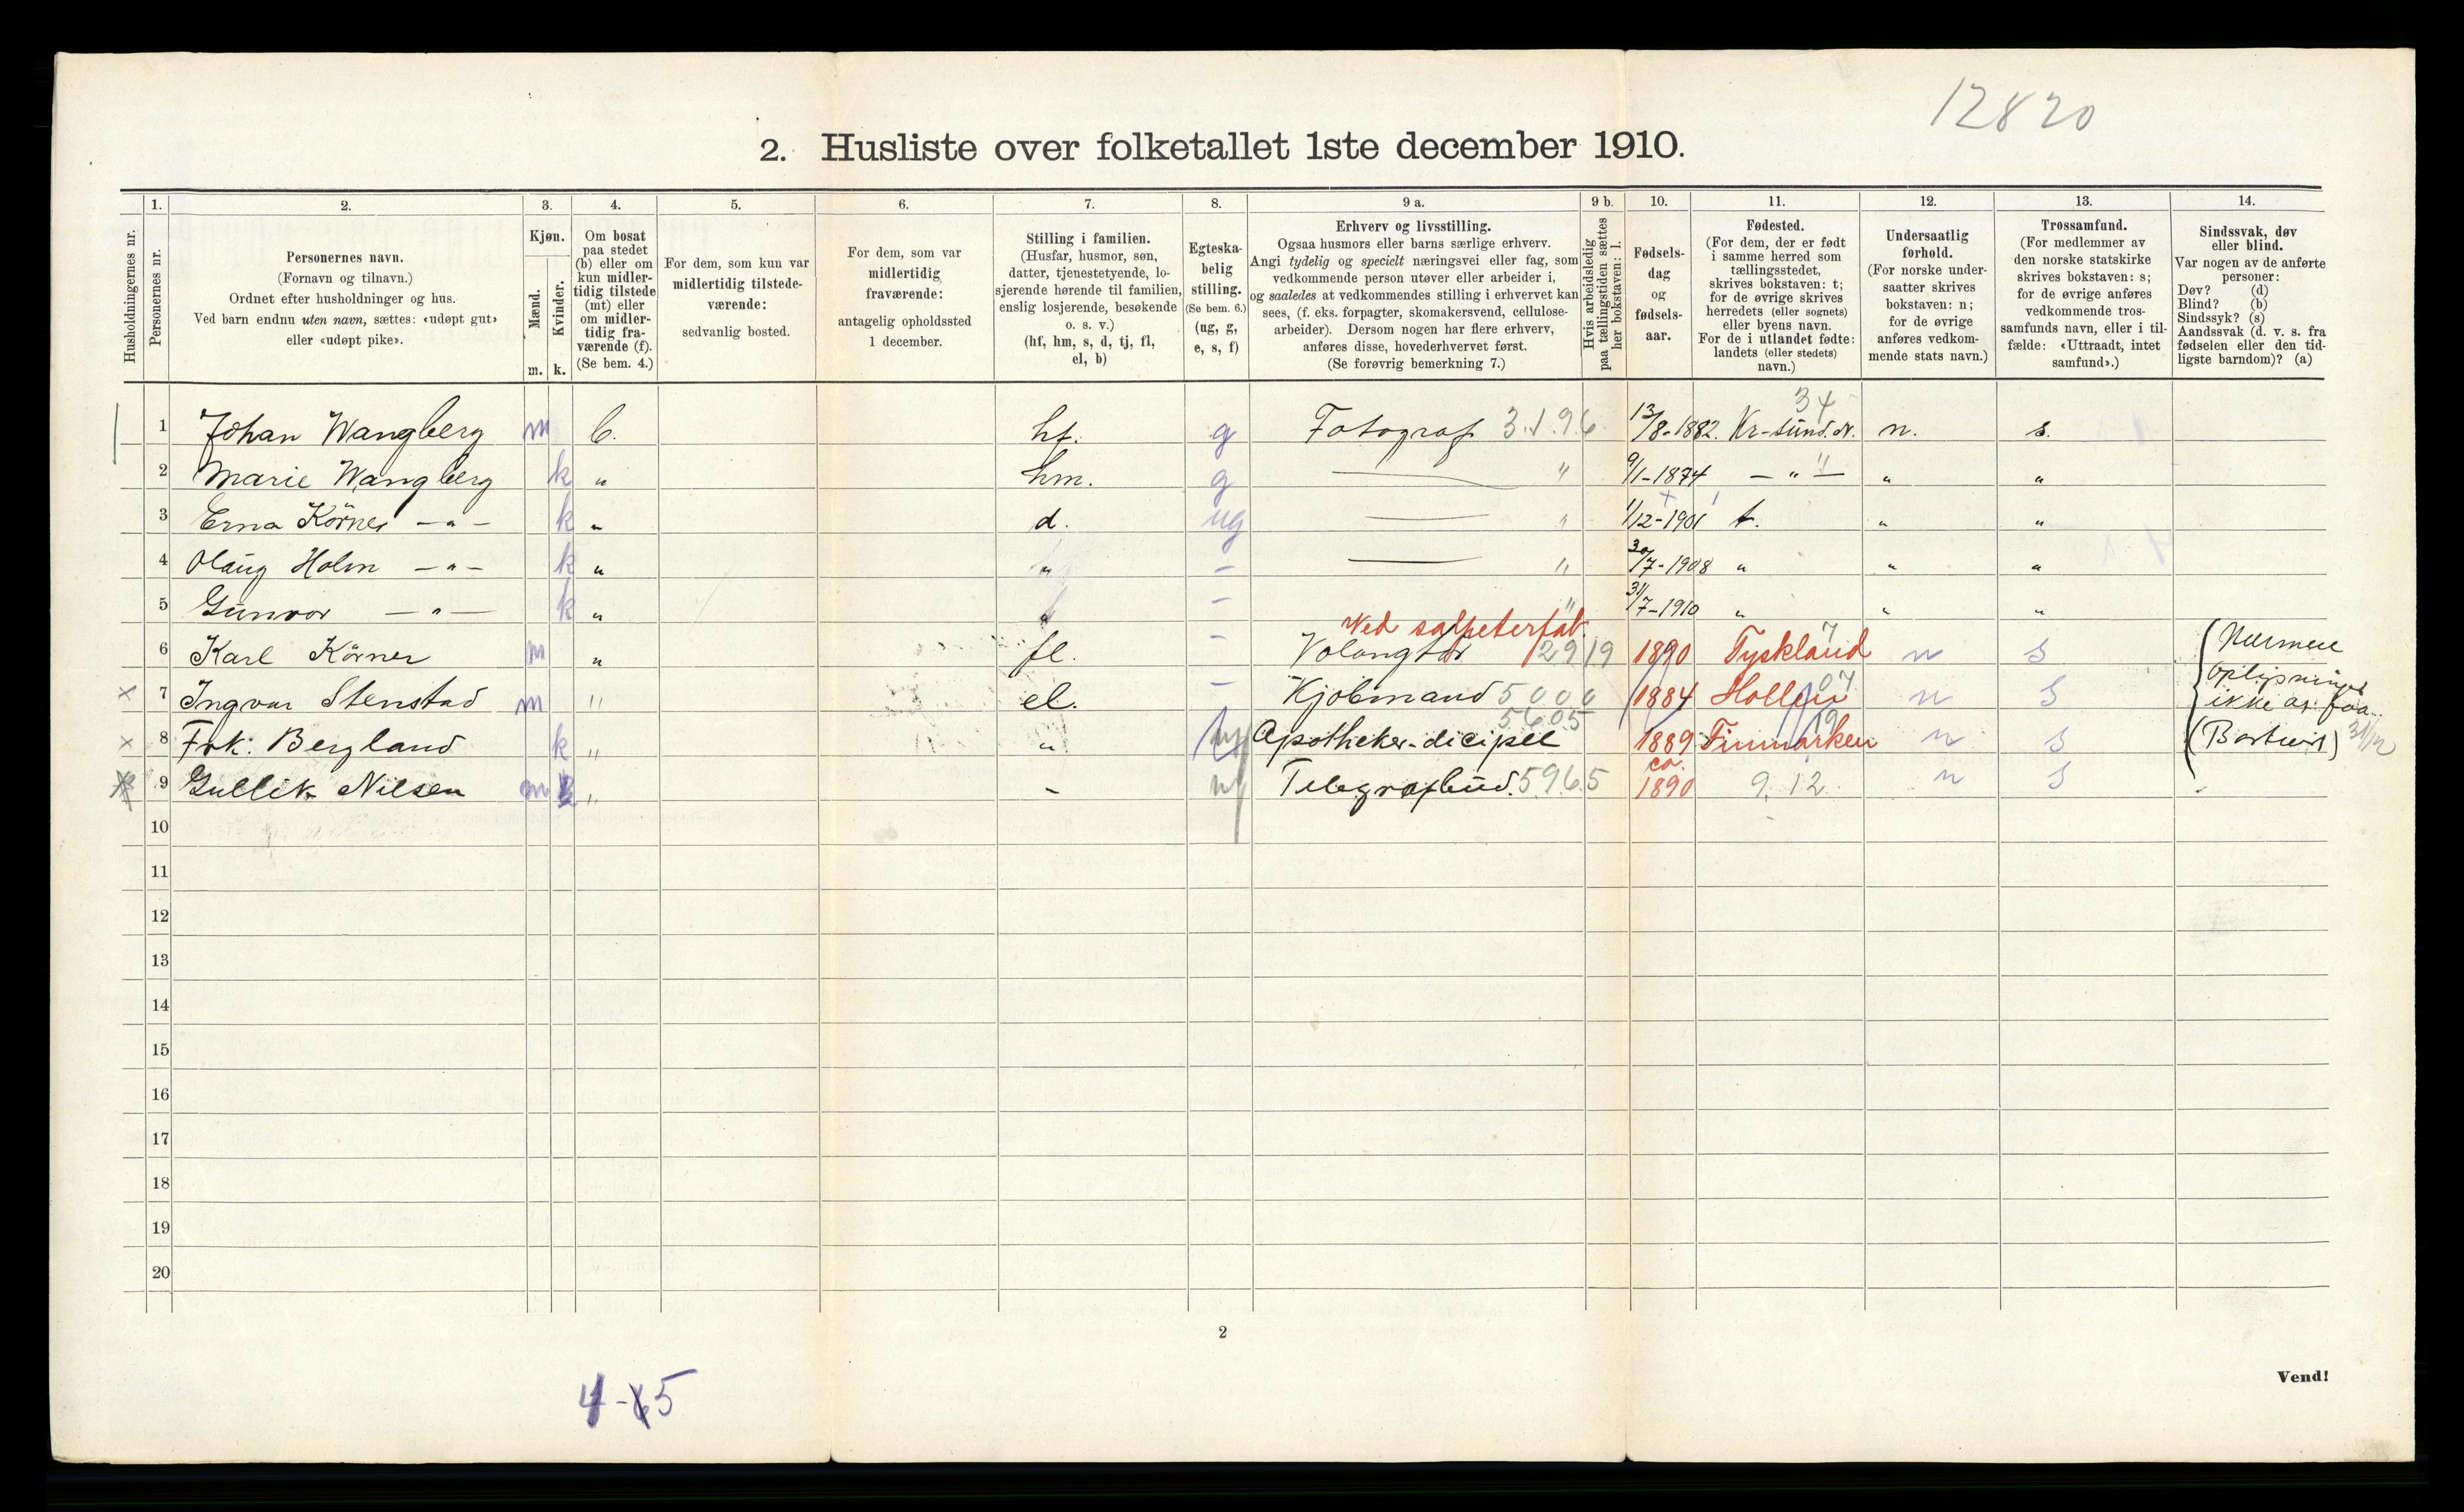 12820
2. Husliste over folketallet 1ste december 1910.
1. 2. 3. 4. 5. 6. 7. 8. 9 a. 9 b. 10. 11. 12. 13. 14.
Husholdningernes nr.
Personernes nr.
Personernes navn.
(Fornavn og tilnavn.)
Ordnet efter husholdninger og hus.
Ved barn endnu uten navn, sættes: «udøpt gut»
eller «udøpt pike».
Kjøn.
Mænd.
Kvinder.
m. k.
Om bosat
paa stedet
(b) eller om
kun midler-
tidig tilstede
(mt) eller
om midler-
tidig fra-
værende (f).
(Se bem. 4.)
For dem, som kun var
midlertidig tilstede-
værende:
sedvanlig bosted.
For dem, som var
midlertidig
fraværende:
antagelig opholdssted
1 december.
Stilling i familien.
(Husfar, husmor, søn,
datter, tjenestetyende, lo-
sjerende hørende til familien,
enslig losjerende, besøkende
o. s. v.)
(hf, hm, s, d, tj, fl,
el, b)
Egteska-
belig
stilling.
(Se bem. 6.)
(ug, g,
e, s, f)
Erhverv og livsstilling.
Ogsaa husmors eller barns særlige erhverv.
Angi tydelig og specielt næringsvei eller fag, som
vedkommende person utøver eller arbeider i,
og saaledes at vedkommendes stilling i erhvervet kan
sees, (f. eks. forpagter, skomakersvend, cellulose-
arbeider). Dersom nogen har flere erhverv,
anføres disse, hovederhvervet først.
(Se forøvrig bemerkning 7.)
Hvis arbeidsledig
paa tællingstiden sættes
her bokstaven: l.
Fødsels-
dag
og
fødsels-
aar.
Fødested.
(For dem, der er født
i samme herred som
tællingsstedet,
skrives bokstaven: t;
for de øvrige skrives
herredets (eller sognets)
eller byens navn.
For de i utlandet fødte:
landets (eller stedets)
navn.)
Undersaatlig
forhold.
(For norske under-
saatter skrives
bokstaven: n;
for de øvrige
anføres vedkom-
mende stats navn.)
Trossamfund.
(For medlemmer av
den norske statskirke
skrives bokstaven: s;
for de øvrige anføres
vedkommende tros-
samfunds navn, eller i til-
fælde: «Uttraadt, intet
samfund».)
Sindssvak, døv
eller blind.
Var nogen av de anførte
personer:
Døv? (d)
Blind? (b)
Sindssyk? (s)
Aandssvak (d. v. s. fra
fødselen eller den tid-
ligste barndom)? (a)
34
1 Johan Wangberg m b. hf. g Fotograf 3.1.96 13/8-1882. Kr-sund. N. n. s.
2 Marie Wangberg k " hm. g — " 9/1-1874 — " — " "
3 Erna Körner — " — k " d. ug — " 1/12-1901 t. " "
4 Olaug Holm — " — k " " - — " 30/7-1908 " " "
5 Gunvor — " — k " " - " 31/7-1910 " " "
Ved salpeterfab.
6 Karl Körner m " fl. - Volontør 2919 1890 Tyskland 7 n s Nærmere
x 7 Ingvar Stenstad m " el. - Kjöbmand 5000 1884 Hollen 07 n s ikke at faa.
5605
x 8 Frk. Bergland k " " Apotheker-dicipel 1889 Finmarken n s (Bortreist) 31/12
9 Gullik Nilsen m " - Telegrafbud. 5965 ca. 1890 9.12 n s
10
11
12
13
14
15
16
17
18
19
20
2
Vend!
4-5